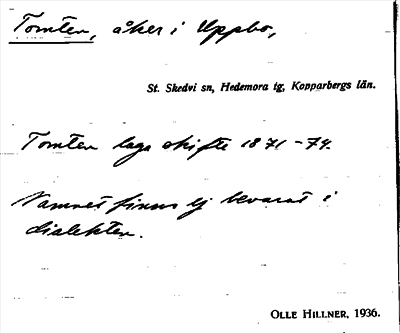 Tomten, åker i Uppbo,
St. Skedvi sn, Hedemora tg, Kopparbergs län.
Tomten laga skifte 1871-74.
Namnet finns ej bevarat i
dialekten.
OLLE HILLNER, 1936.